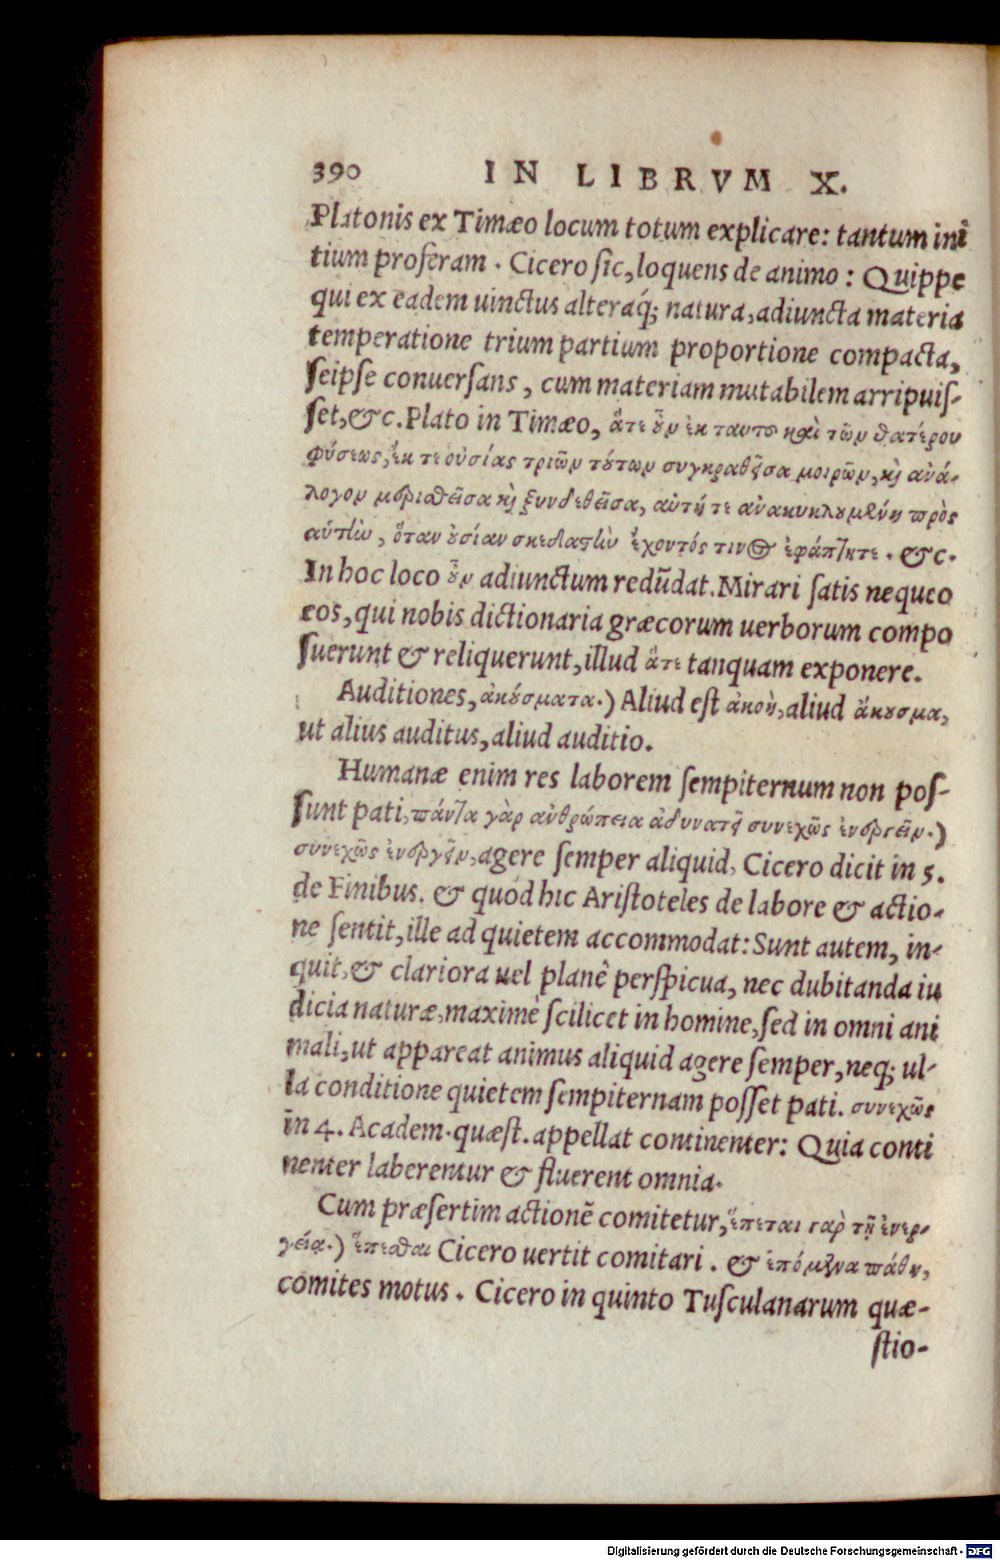 390 IN LIBRVM X.
Platonis ex Timæo locum totum explicare: tantum ini
tium proferam. Cicero sic, loquens de animo: Quippe
qui ex eadem uinctus alteraq́; natura, adiuncta materia
temperatione trium partium proportione compacta,
seipse conuersans, cum materiam mutabilem arripuis-
set, &c. Plato in Timæo, ἅτε οὖν ἐκ ταυτοῦ καὶ τῶν θατέρου
φύσεως, ἐκ τε οὐσίας τριῶν τούτων συγκραθεῖσα μοιρῶν, καὶ ἀνά-
λογον μερισθεῖσα καὶ ξυνδεθεῖσα, αὐτή τε ἀνακυκλουμένη πρὸς
αὑτὴν, ὅταν οὐσίαν σκεδαστὴν ἔχοντός τινος ἐφάπτηται. &c.
In hoc loco οὖν adiunctum redūdat. Mirari satis nequeo
eos, qui nobis dictionaria græcorum uerborum compo
suerunt & reliquerunt, illud ἅτε tanquam exponere.
Auditiones, ἀκούσματα.) Aliud est ἀκοή, aliud ἄκουσμα,
ut alius auditus, aliud auditio.
Humanæ enim res laborem sempiternum non pos-
sunt pati, πάντα γὰρ ἀνθρώπεια ἀδυνατεῖ συνεχῶς ἐνεργεῖν.)
συνεχῶς ἐνεργεῖν, agere semper aliquid, Cicero dicit in 5.
de Finibus. & quod hic Aristoteles de labore & actio-
ne sentit, ille ad quietem accommodat: Sunt autem, in-
quit, & clariora uel planè perspicua, nec dubitanda iu
dicia naturæ, maximè scilicet in homine, sed in omni ani
mali, ut appareat animus aliquid agere semper, neq; ul-
la conditione quietem sempiternam posset pati. συνεχῶς
in 4. Academ. quæst. appellat continenter: Quia conti
nenter laberentur & fluerent omnia.
Cum præsertim actionē comitetur, ἕπεται γὰρ τῇ ἐνερ-
γείᾳ.) ἕπεσθαι Cicero uertit comitari. & ἑπόμενα πάθη,
comites motus. Cicero in quinto Tusculanarum quæ-
stio-
Digitalisierung gefördert durch die Deutsche Forschungsgemeinschaft - DFG